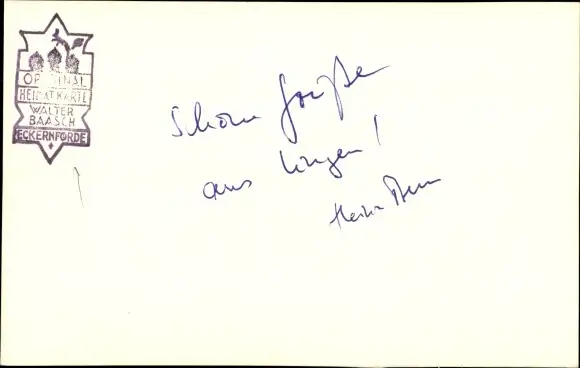 ORIGINAL
HEIMATKARTE
WALTER
BAASCH
ECKERNFÖRDE
Schöne Grüße
aus Lingen!
Heinz